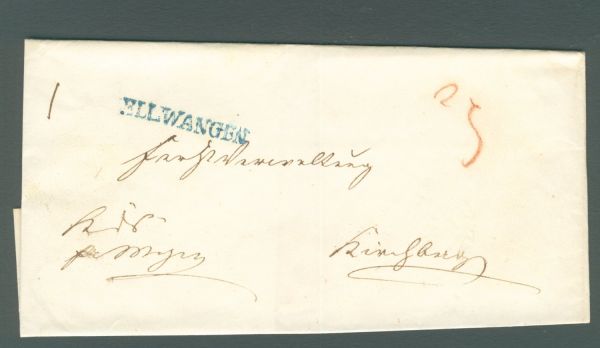 1
ELLWANGEN
23
Forstverwaltung
K.d.S.
Kirchberg